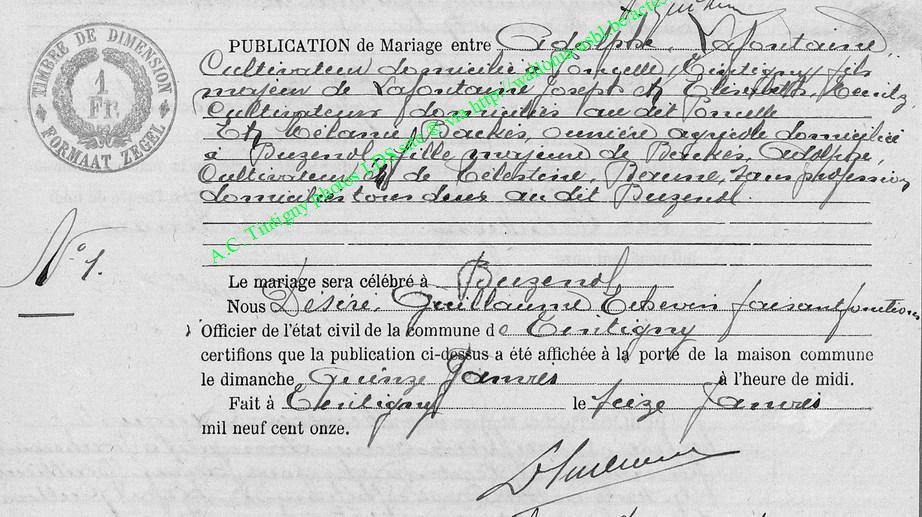 TIMBRE DE DIMENSION
1
FR.
FORMAAT ZEGEL
PUBLICATION de Mariage entre Adolphe, Lafontaine
Cultivateur domicilié à Poncelle, Tintigny, fils
majeur de Lafontaine Joseph et Elisabeth,
Cultivateurs domiciliés au dit Poncelle
Et Mélanie, Backes, ouvrière agricole domiciliée
à Buzenol, fille majeure de Backes, Adolphe,
Cultivateur et de Célestine, Beaune, sans profession
domiciliés tous deux au dit Buzenol.
N° 1.
Le mariage sera célébré à Buzenol
Nous Désiré, Guillaume faisant fonctions
Officier de l'état civil de la commune de Tintigny
certifions que la publication ci-dessus a été affichée à la porte de la maison commune
le dimanche Quinze Janvier à l'heure de midi.
Fait à Tintigny le seize Janvier
mil neuf cent onze.
A.C. Tintigny Photos LDS via http://wallonia.asbl.be/actes